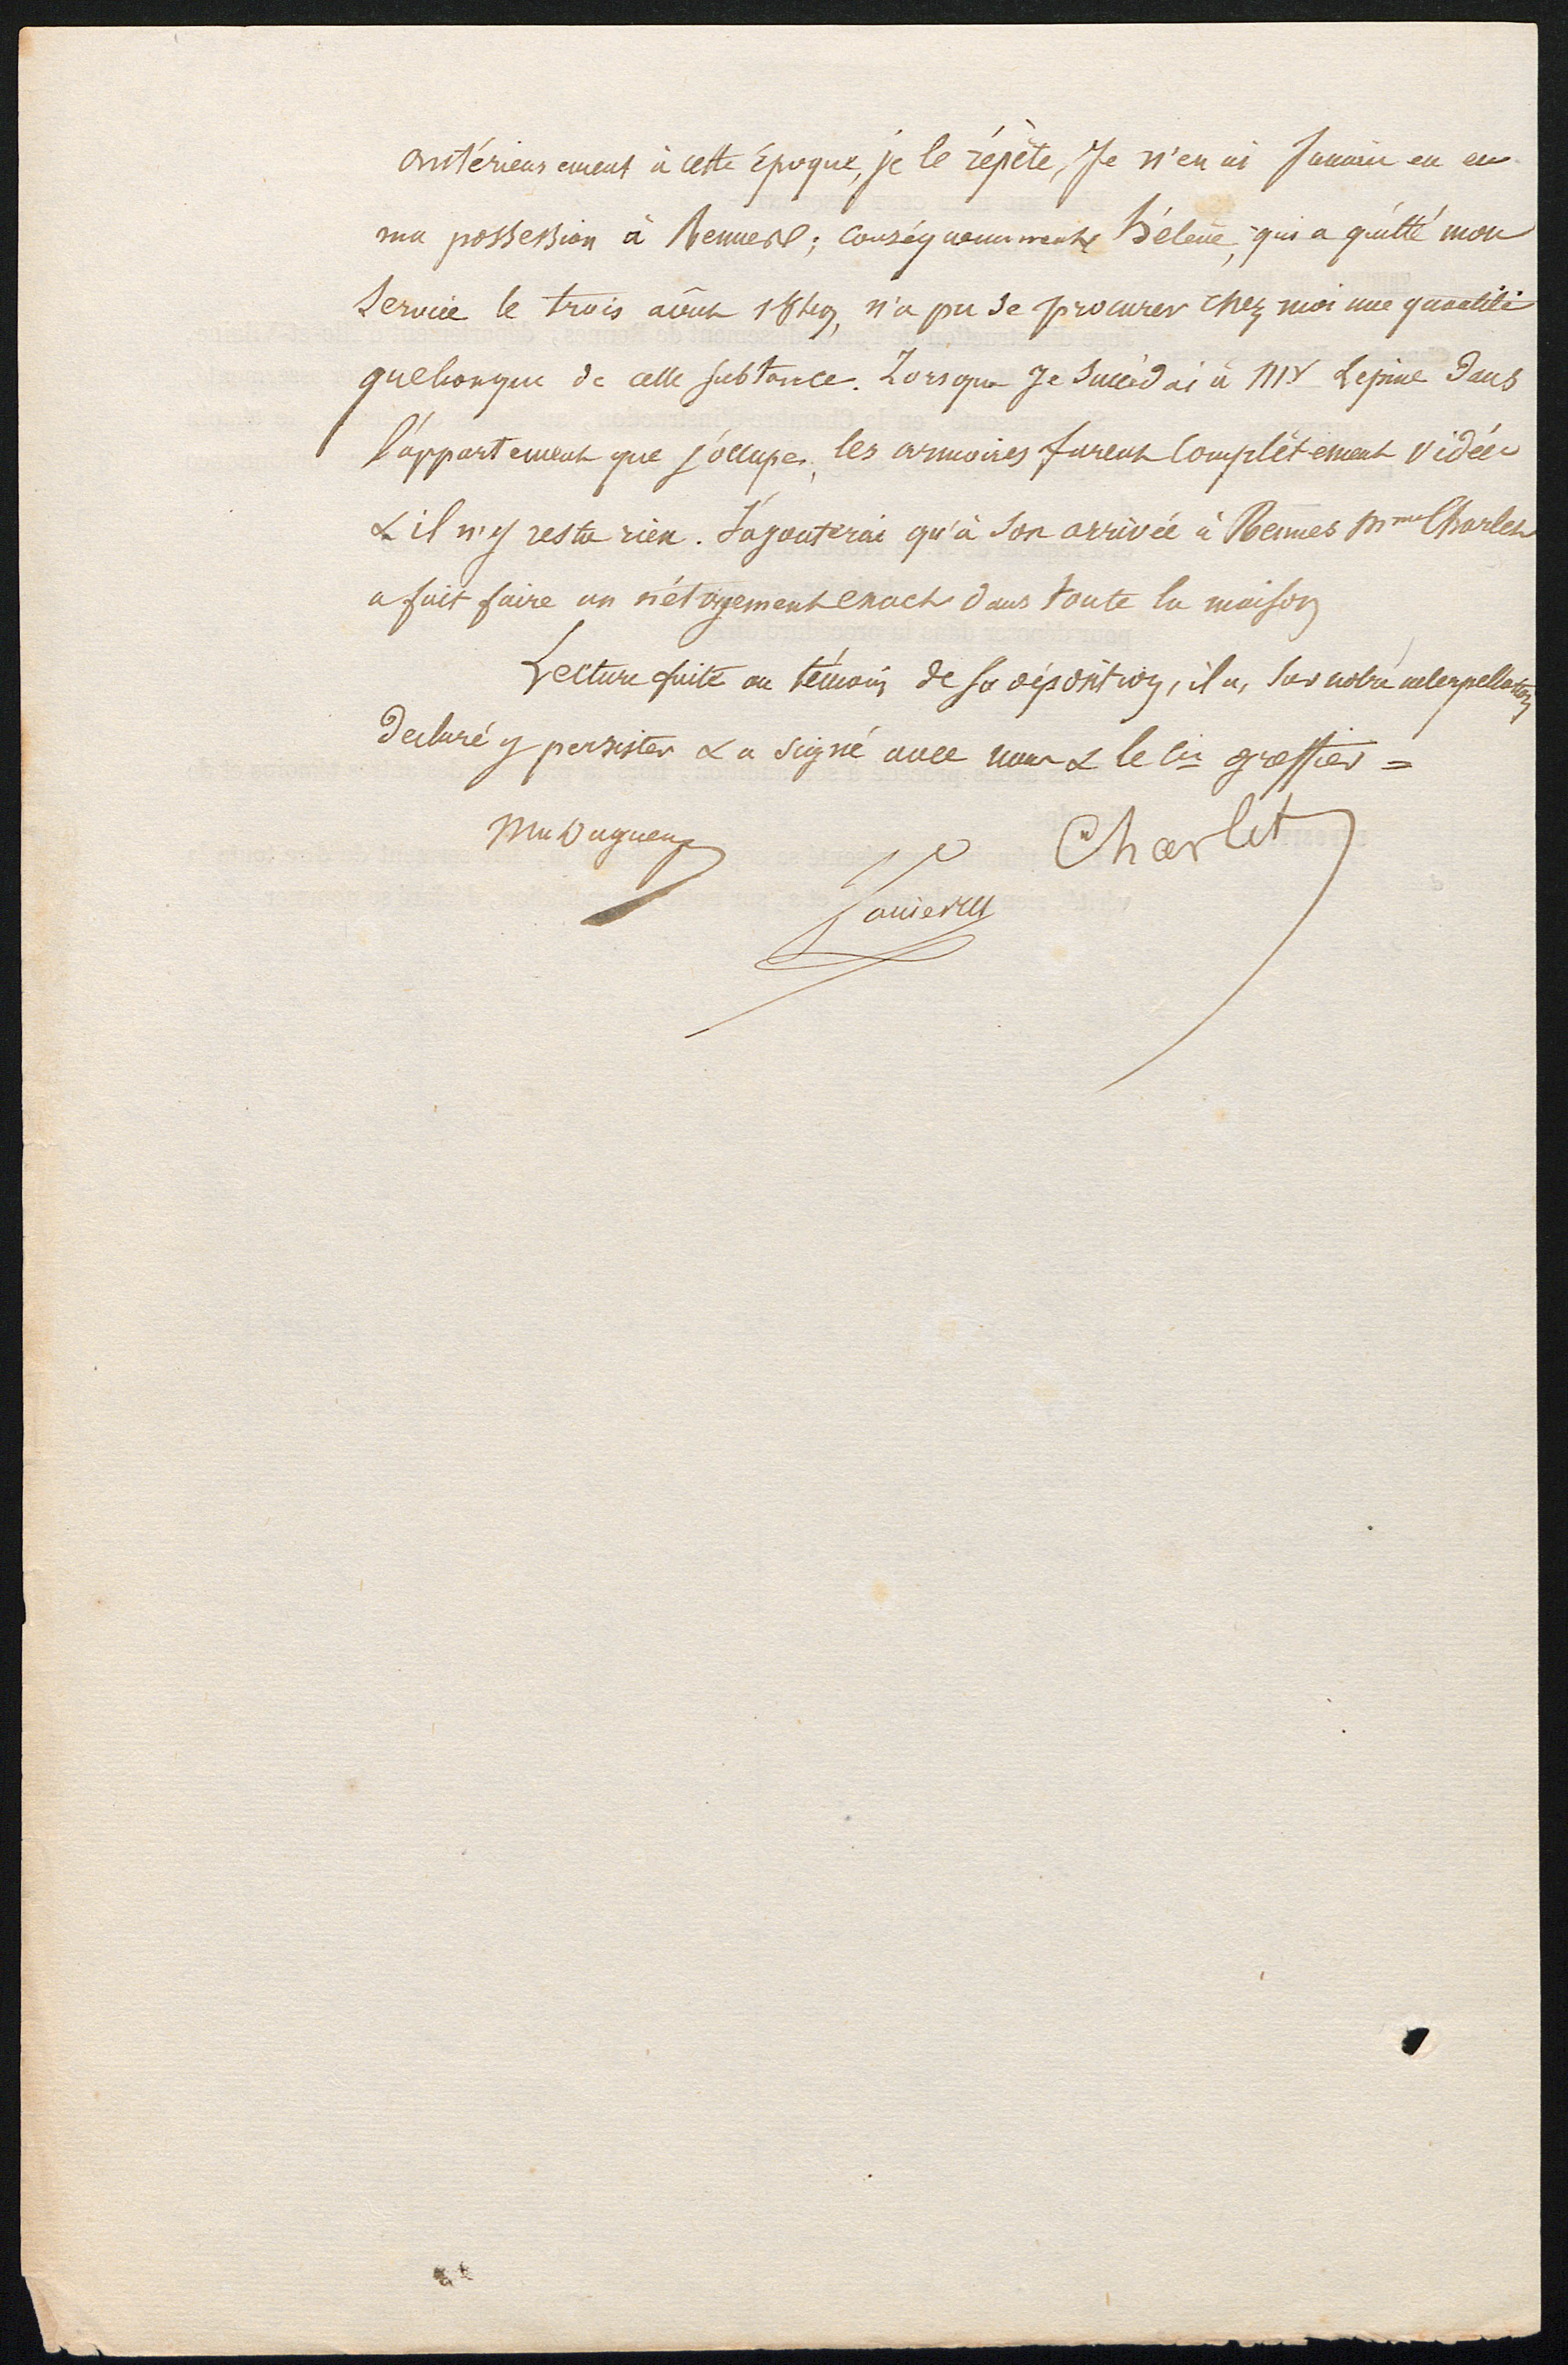 antérieurement à cette époque, je le répète, Je n'en ai Jamais eu en
ma possession à Rennes ; conséquemment Hélène, qui a quitté mon
service le trois août 1849, n'a pu se procurer chez moi une quantité
quelconque de cette substance. Lorsque Je succédai à Mr Lepine dans
l'appartement que j'occupe, les armoires furent complètement vidées
& il n'y resta rien. J'ajouterai qu'à son arrivée à Rennes Mme Charlet
a fait faire un nétoyement exact dans toute la maison
Lecture faite au témoin de sa déposition, il a, sur notre interpellation
déclaré y persister & a signé avec nous & le Cis greffier =
Charlet